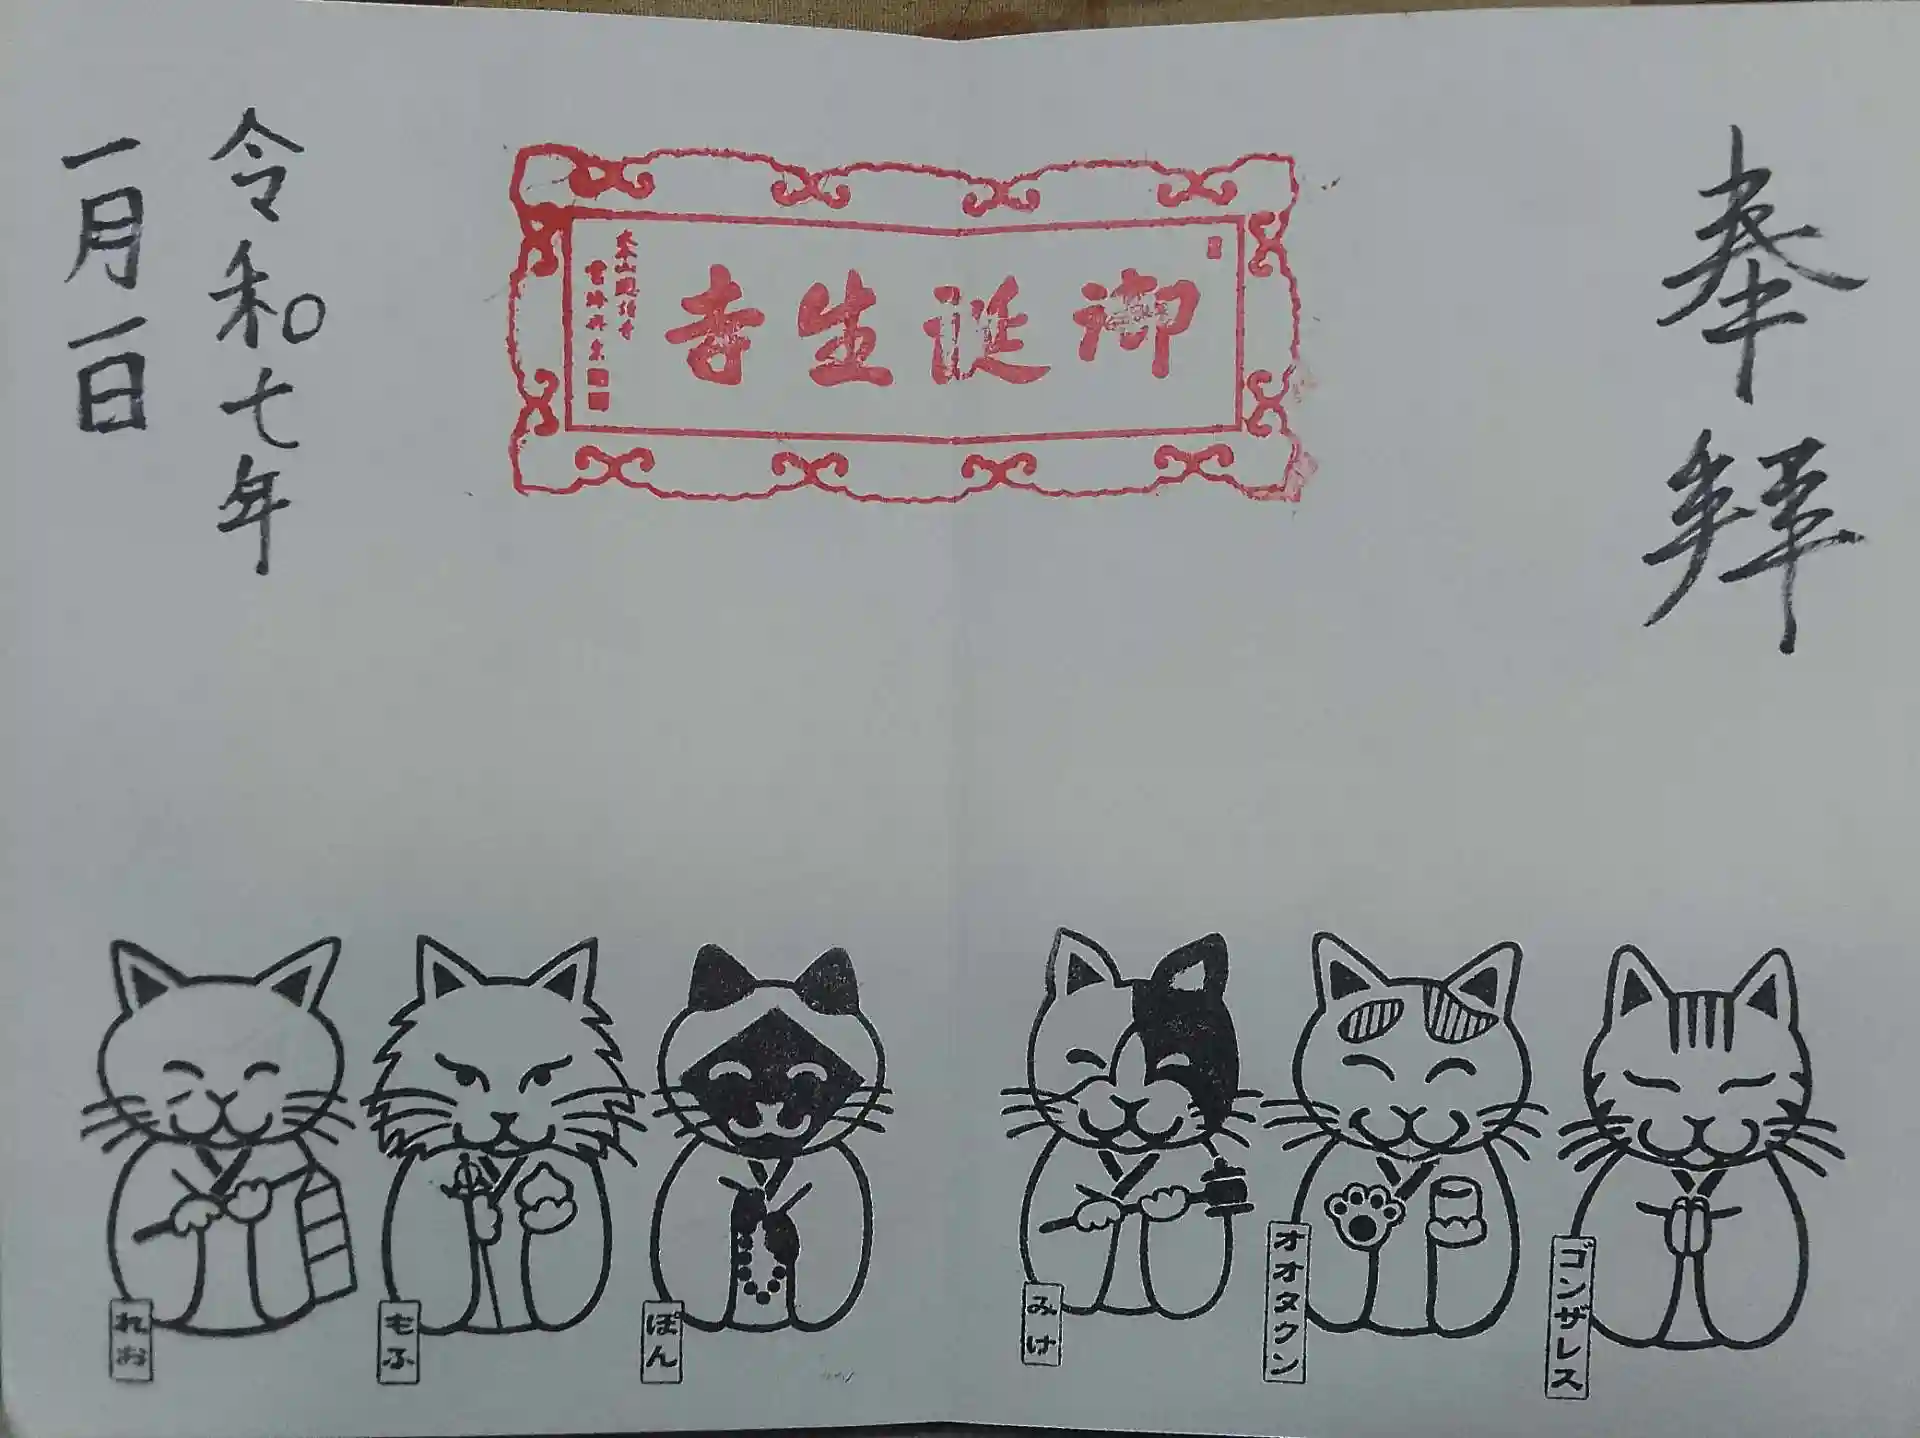 奉拝
御誕生寺
令和七年
一月一日
ゴンザレス
オオタクン
みけ
ぽん
もふ
れお